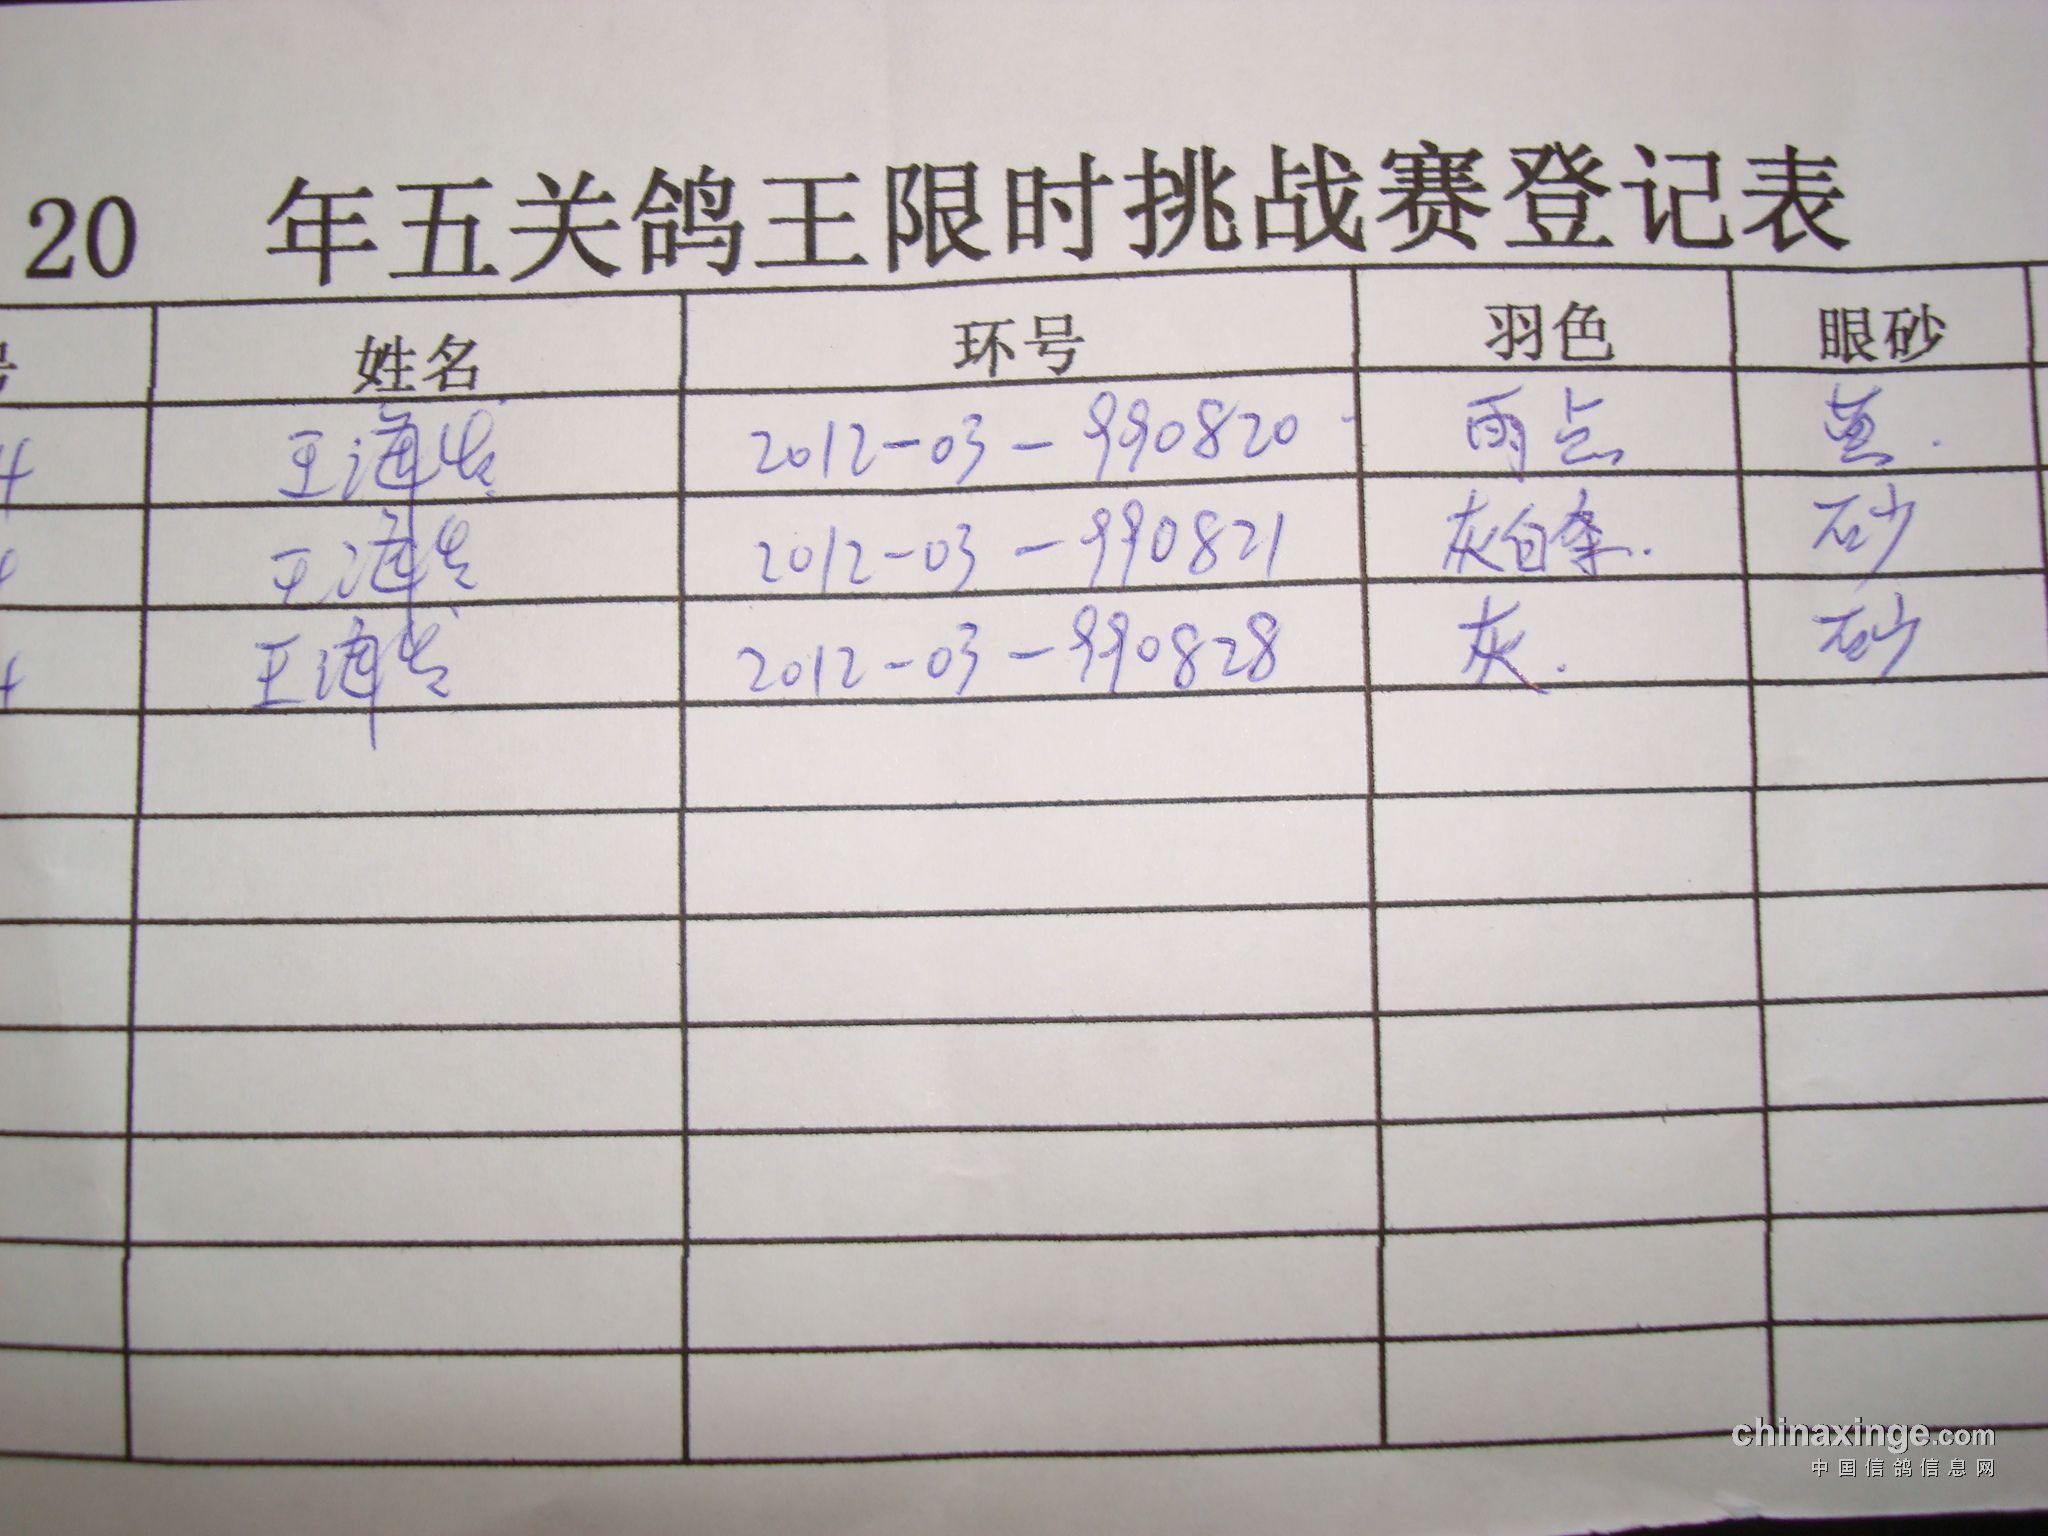 20 年五关鸽王限时挑战赛登记表
号 姓名 环号 羽色 眼砂
4 王 2012-03-990820 雨点 黄.
4 王 2012-03-990821 灰白条. 砂
4 王 2012-03-990828 灰. 砂
chinaxinge.com
中国信鸽信息网